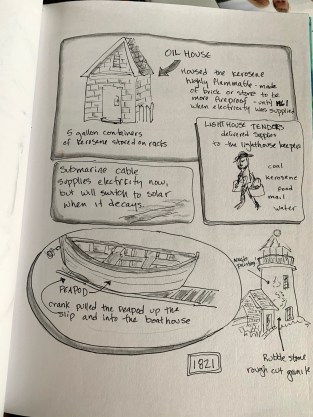 OIL HOUSE
Housed the kerosene
highly flammable - made
of brick or stone to be
more fireproof - only
when electricity was supplied
5 gallon containers
of kerosene stored on racks
LIGHTHOUSE TENDERS
delivered supplies
to the lighthouse keepers
coal
kerosene
food
mail
water
Submarine cable
supplies electricity now,
but will switch to solar
when it decays
PEAPOD
crank pulled the peapod up the
slip and into the boathouse
1821
Rubble stone
rough cut granite